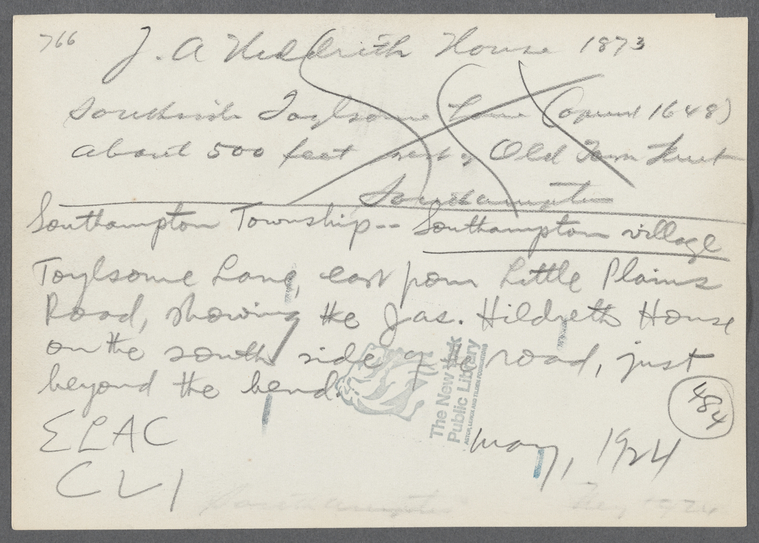 766
J. A Hildreth House 1873
Southside Toylsome Lane (opened 1648)
about 500 feet west of Old Town Street
Southampton
Southampton Township -- Southampton village
Toylsome Lane, east from Little Plains
Road, showing the Jas. Hildreth House
on the south side of the road, just
beyond the bend.
484
The New York
Public Library
ELAC
May, 1924
CLI
Southampton
May 1924